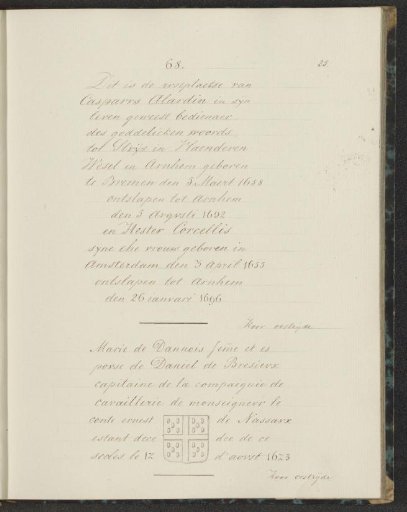 68. 35.
Dit is de rustplaetse van
Casparus Alardin in syn
leven geweest bedienaer
des goddelicken woords
tot Sluys in Vlaenderen
Wesel en Arnhem geboren
te Bremen den 3 Maert 1638
ontslapen tot Arnhem
den 5 Avgvsti 1692
en Hester Corcellis
syne ehe vrouw geboren in
Amsterdam den 3 April 1655
ontslapen tot Arnhem
den 26 ianvari 1696
Koor oostzyde
Marie de Dannois feme et es
povse de Daniel de
capitaine de la compaignie de
cavaillerie de monseigneur le
conte ernest de Nassavx
estant dece dee de ce
secles le 12 d'aovst 1623
Koor oostzyde